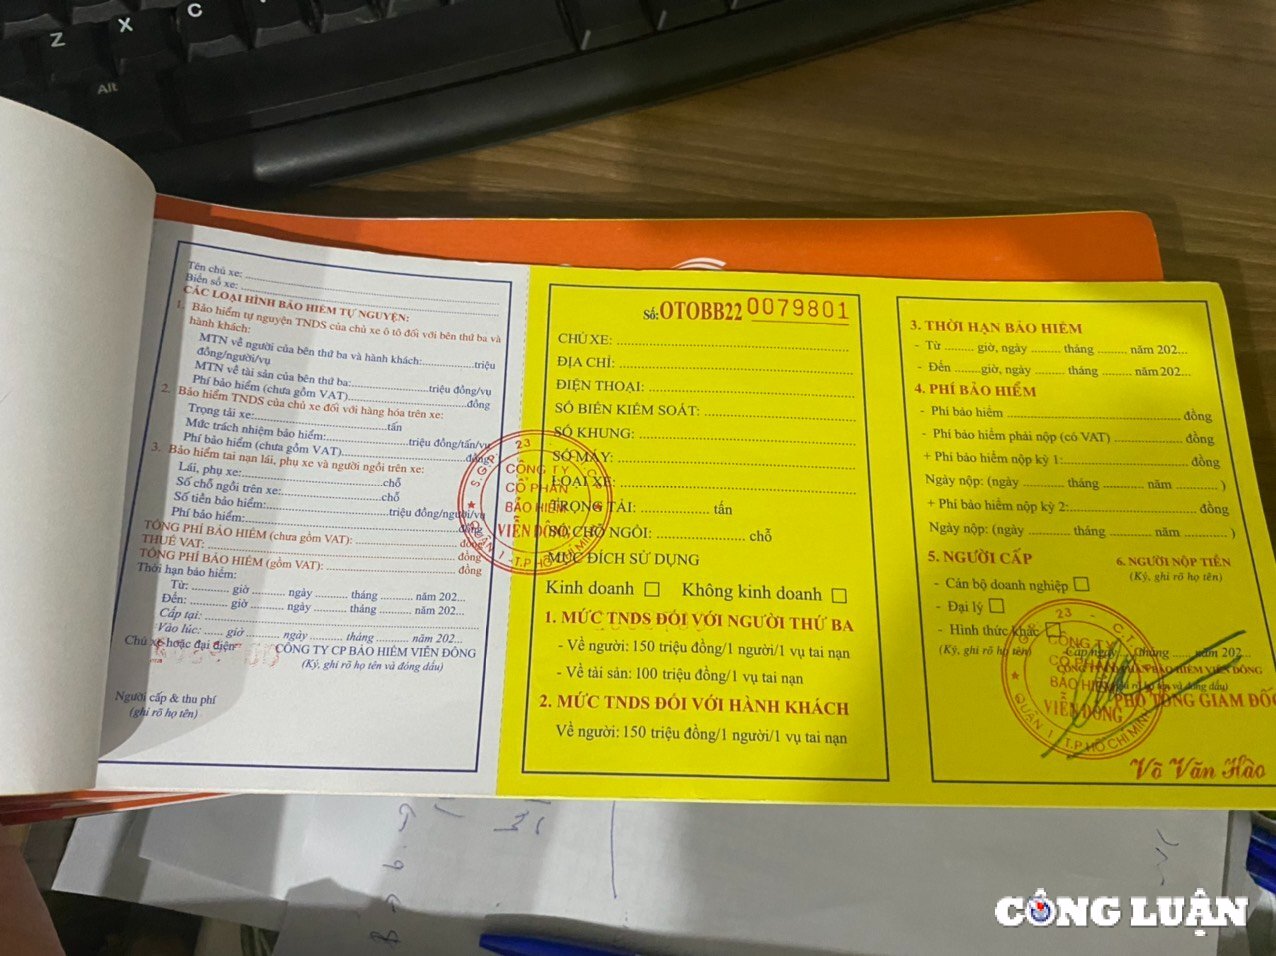 Z
X
C
Alt
Tên chủ xe:
Biển số xe:
CÁC LOẠI HÌNH BẢO HIỂM TỰ NGUYỆN:
1. Bảo hiểm tự nguyện TNDS của chủ xe ô tô đối với bên thứ ba và
hành khách:
MTN về người của bên thứ ba và hành khách:..................triệu
đồng/người/vụ
MTN về tài sản của bên thứ ba:..................triệu đồng/vụ
Phí bảo hiểm (chưa gồm VAT)..................đồng
2. Bảo hiểm TNDS của chủ xe đối với hàng hóa trên xe:
Trọng tải xe:..................tấn
Mức trách nhiệm bảo hiểm:..................triệu đồng/tấn/vụ
Phí bảo hiểm (chưa gồm VAT):..................đồng
3. Bảo hiểm tai nạn lái, phụ xe và người ngồi trên xe:
Lái, phụ xe:..................chỗ
Số chỗ ngồi trên xe:..................chỗ
Số tiền bảo hiểm:..................triệu đồng/người/vụ
Phí bảo hiểm:..................đồng
TỔNG PHÍ BẢO HIỂM (chưa gồm VAT):..................đồng
THUẾ VAT:..................đồng
TỔNG PHÍ BẢO HIỂM (gồm VAT):..................đồng
Thời hạn bảo hiểm:
Từ: ......... giờ ......... ngày ......... tháng ......... năm 202...
Đến: ......... giờ ......... ngày ......... tháng ......... năm 202...
Cấp tại:
Vào lúc: ...... giờ ......... ngày ......... tháng ......... năm 202...
Chủ xe hoặc đại diện CÔNG TY CP BẢO HIỂM VIỄN ĐÔNG
(Ký, ghi rõ họ tên và đóng dấu)
Người cấp & thu phí
(ghi rõ họ tên)
Số: OTOBB22 0079801
CHỦ XE:
ĐỊA CHỈ:
ĐIỆN THOẠI:
SỐ BIỂN KIỂM SOÁT:
SỐ KHUNG:
SỐ MÁY:
LOẠI XE:
TRỌNG TẢI: .................. tấn
SỐ CHỖ NGỒI: .................. chỗ
MỤC ĐÍCH SỬ DỤNG
Kinh doanh ☐ Không kinh doanh ☐
1. MỨC TNDS ĐỐI VỚI NGƯỜI THỨ BA
- Về người: 150 triệu đồng/1 người/1 vụ tai nạn
- Về tài sản: 100 triệu đồng/1 vụ tai nạn
2. MỨC TNDS ĐỐI VỚI HÀNH KHÁCH
Về người: 150 triệu đồng/1 người/1 vụ tai nạn
CÔNG TY
CỔ PHẦN
BẢO HIỂM
VIỄN ĐÔNG
QUẬN 1 - T.P HỒ CHÍ MINH
3. THỜI HẠN BẢO HIỂM
- Từ ......... giờ, ngày ......... tháng ......... năm 202...
- Đến ......... giờ, ngày ......... tháng ......... năm 202...
4. PHÍ BẢO HIỂM
- Phí bảo hiểm .................. đồng
- Phí bảo hiểm phải nộp (có VAT) .................. đồng
+ Phí bảo hiểm nộp kỳ 1:.................. đồng
Ngày nộp: (ngày ......... tháng ......... năm ......... )
+ Phí bảo hiểm nộp kỳ 2:.................. đồng
Ngày nộp: (ngày ......... tháng ......... năm ......... )
5. NGƯỜI CẤP 6. NGƯỜI NỘP TIỀN
(Ký, ghi rõ họ tên)
- Cán bộ doanh nghiệp ☐
- Đại lý ☐
- Hình thức khác ☐
(Ký, ghi rõ họ tên) Cấp ngày ...... tháng ...... năm 202...
CÔNG TY CỔ PHẦN BẢO HIỂM VIỄN ĐÔNG
PHÓ TỔNG GIÁM ĐỐC
CÔNG TY
CỔ PHẦN
BẢO HIỂM
VIỄN ĐÔNG
QUẬN 1 - T.P HỒ CHÍ MINH
Võ Văn Hào
CÔNG LUẬN